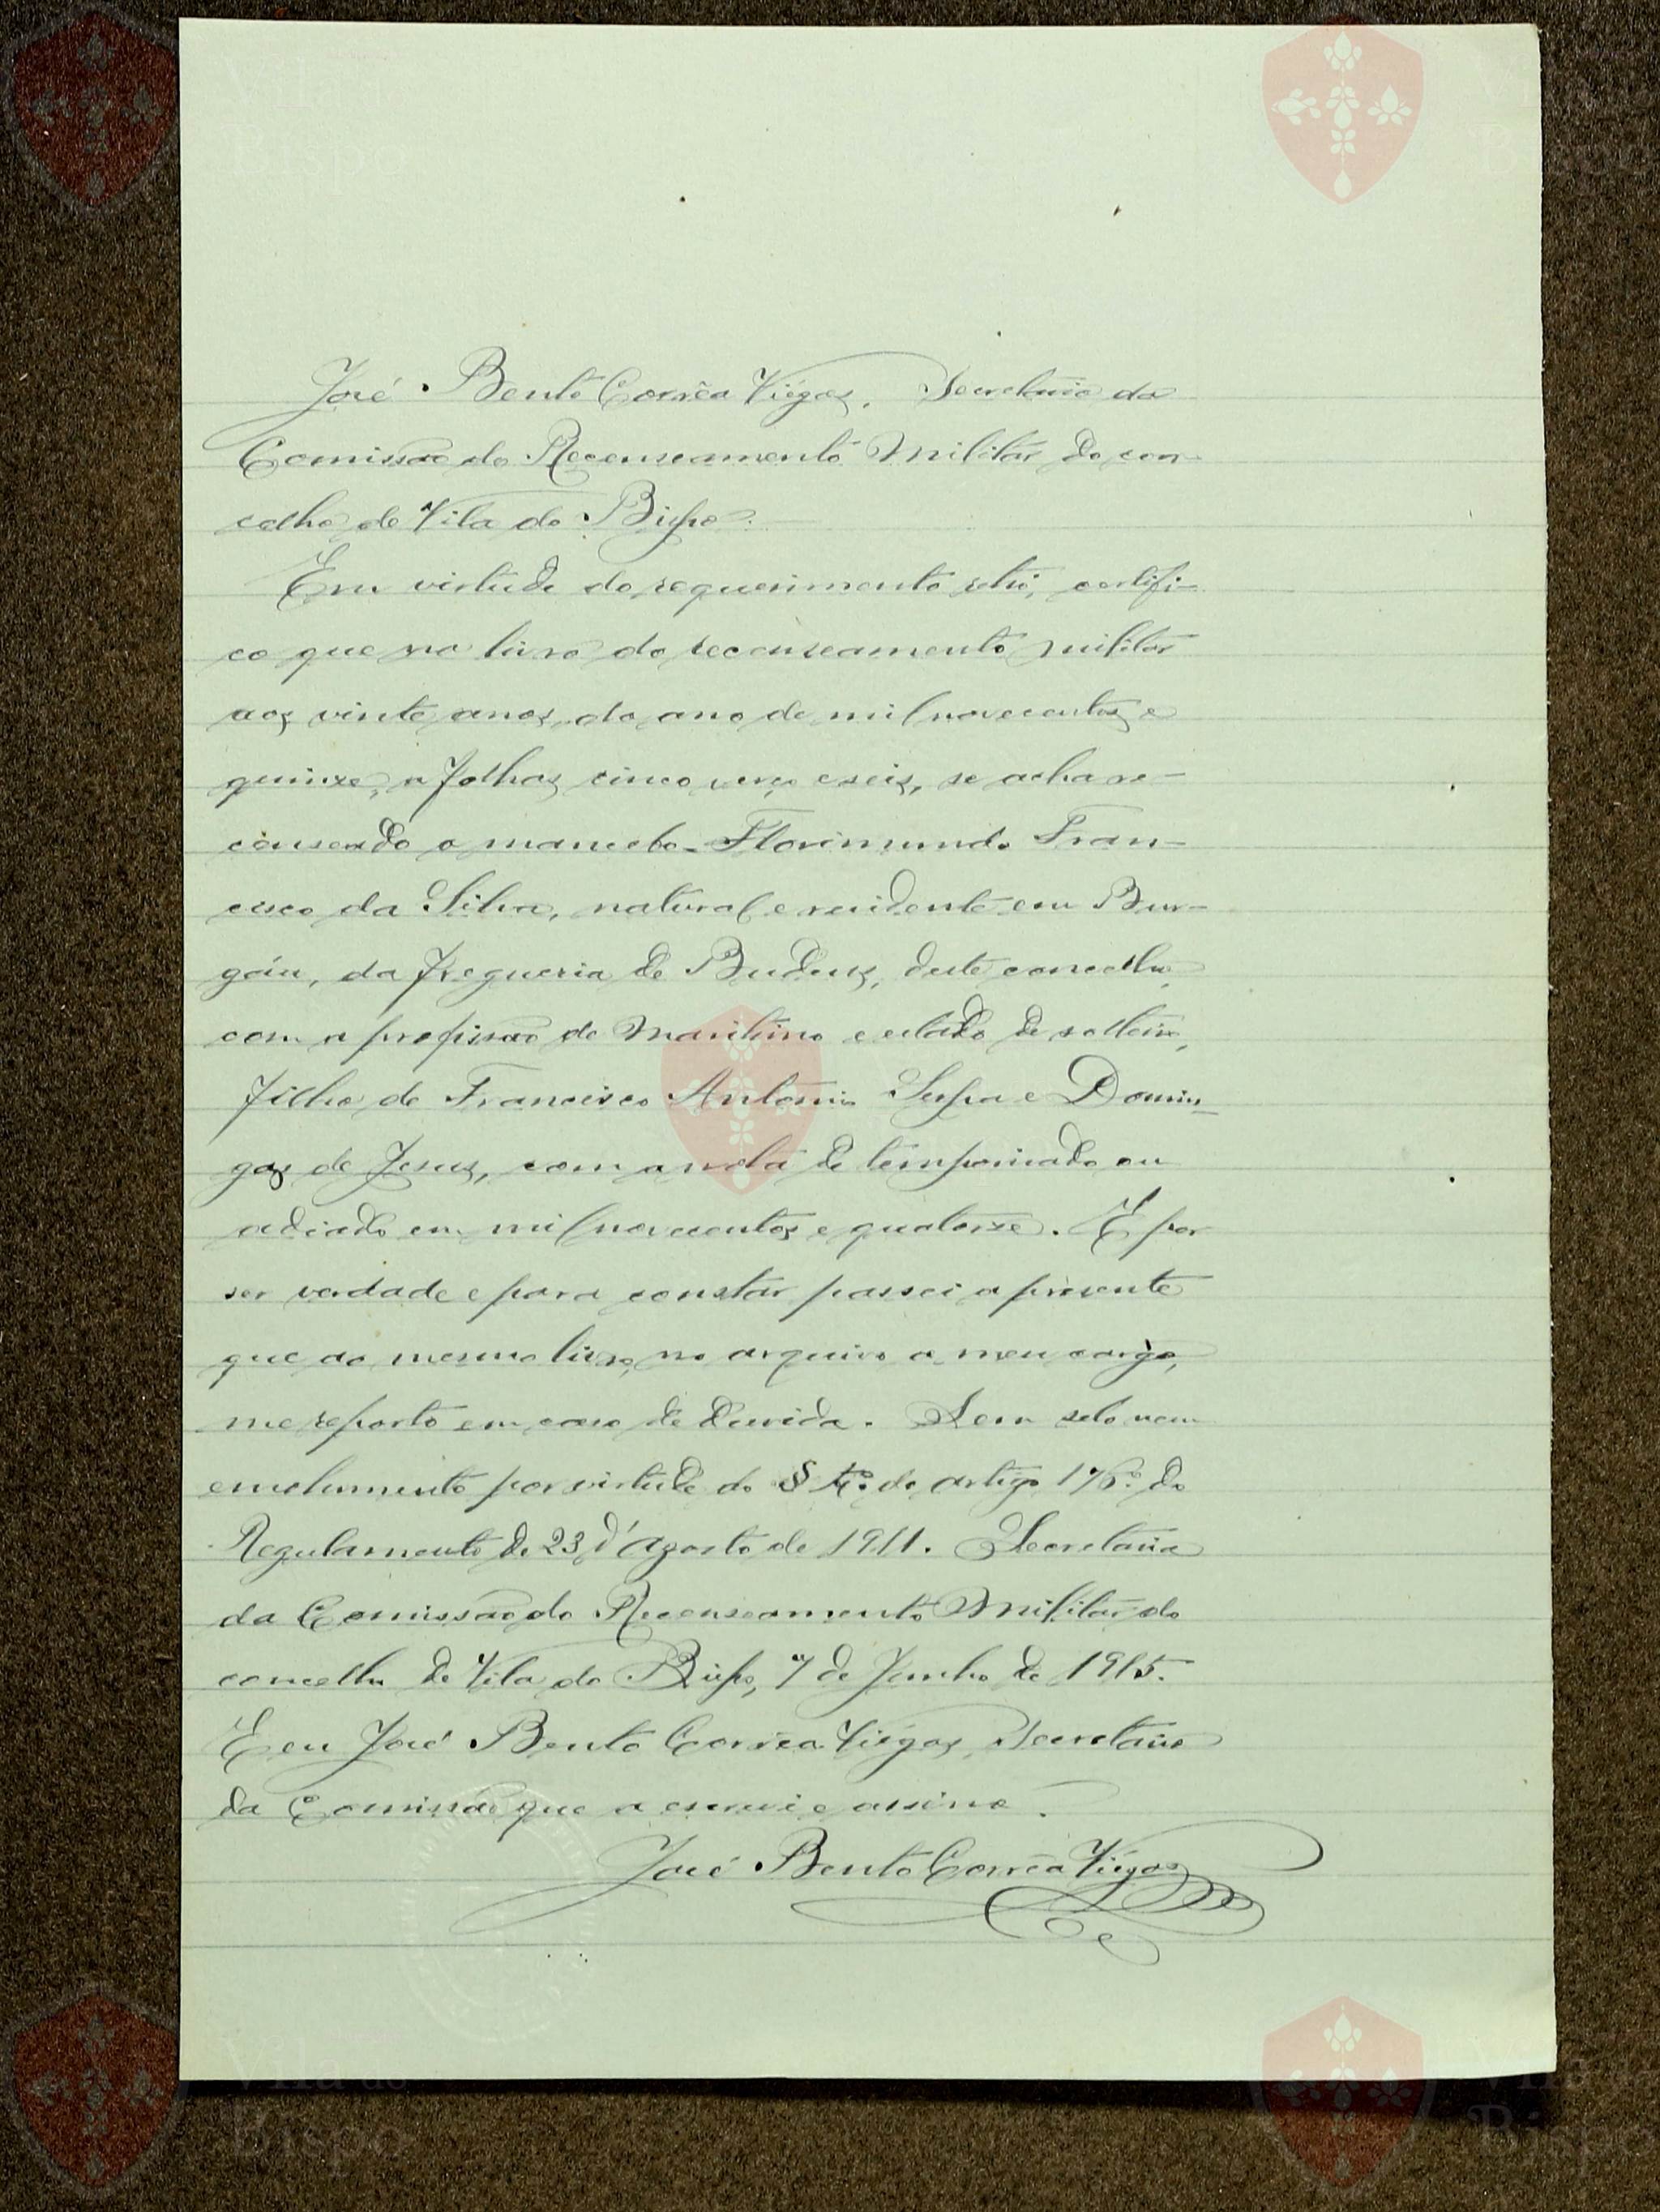 José Bento Corrêa Viégas, Secretario da
Comissão do Recenseamento Militar do con-
celho de Vila do Bispo.
Em virtude do requerimento retró, certifi-
co que no livro do recenseamento militar
aos vinte anos, do ano de mil novecentos e
quinze, a folhas cinco verso e seis, se acha re-
censeado o mancebo Florimundo Fran-
cisco da Silva, natural e residente em Bur-
gáu, da freguesia de Budens, deste concelho,
com a profissão de maritimo e estado de solteiro,
filho de Francisco Antonio e Domin-
gas de Jesus, com a nota de temporisado ou
adiado em mil novecentos e quatorze. E por
ser verdade e para constar passei a presente
que ao mesmo livro, no arquivo a meu cargo,
me reporto em caso de duvida. Sem selo nem
emolumento por virtude do § do artigo do
Regulamento de 23 d'Agosto de 1911. Secretaria
da Comissão do Recenseamento Militar do
concelho de Vila do Bispo, 7 de Junho de 1915.
E eu José Bento Corrêa Viégas, Secretario
da Comissão que a escrevi e assino.
José Bento Corrêa Viégas
Vila do
Bispo